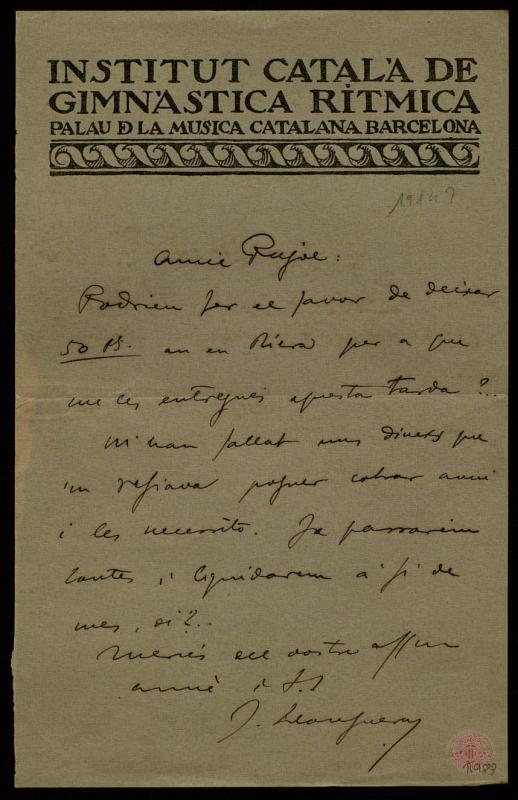 INSTITUT CATALÀ DE
GIMNÀSTICA RÍTMICA
PALAU D LA MUSICA CATALANA BARCELONA
1914?
Amic Pujol:
Podrieu fer el favor de deixar
50 Pts. an en Riera per a que
me les entregués aquesta tarda?..
M'han fallat uns diners que
'm refiava poguer cobrar avui
i les necessito. Ja passarem
contes i liquidarem a fi de
mes, oi?..
Mercés del vostre affm
amic i S.S
J. Llongueras